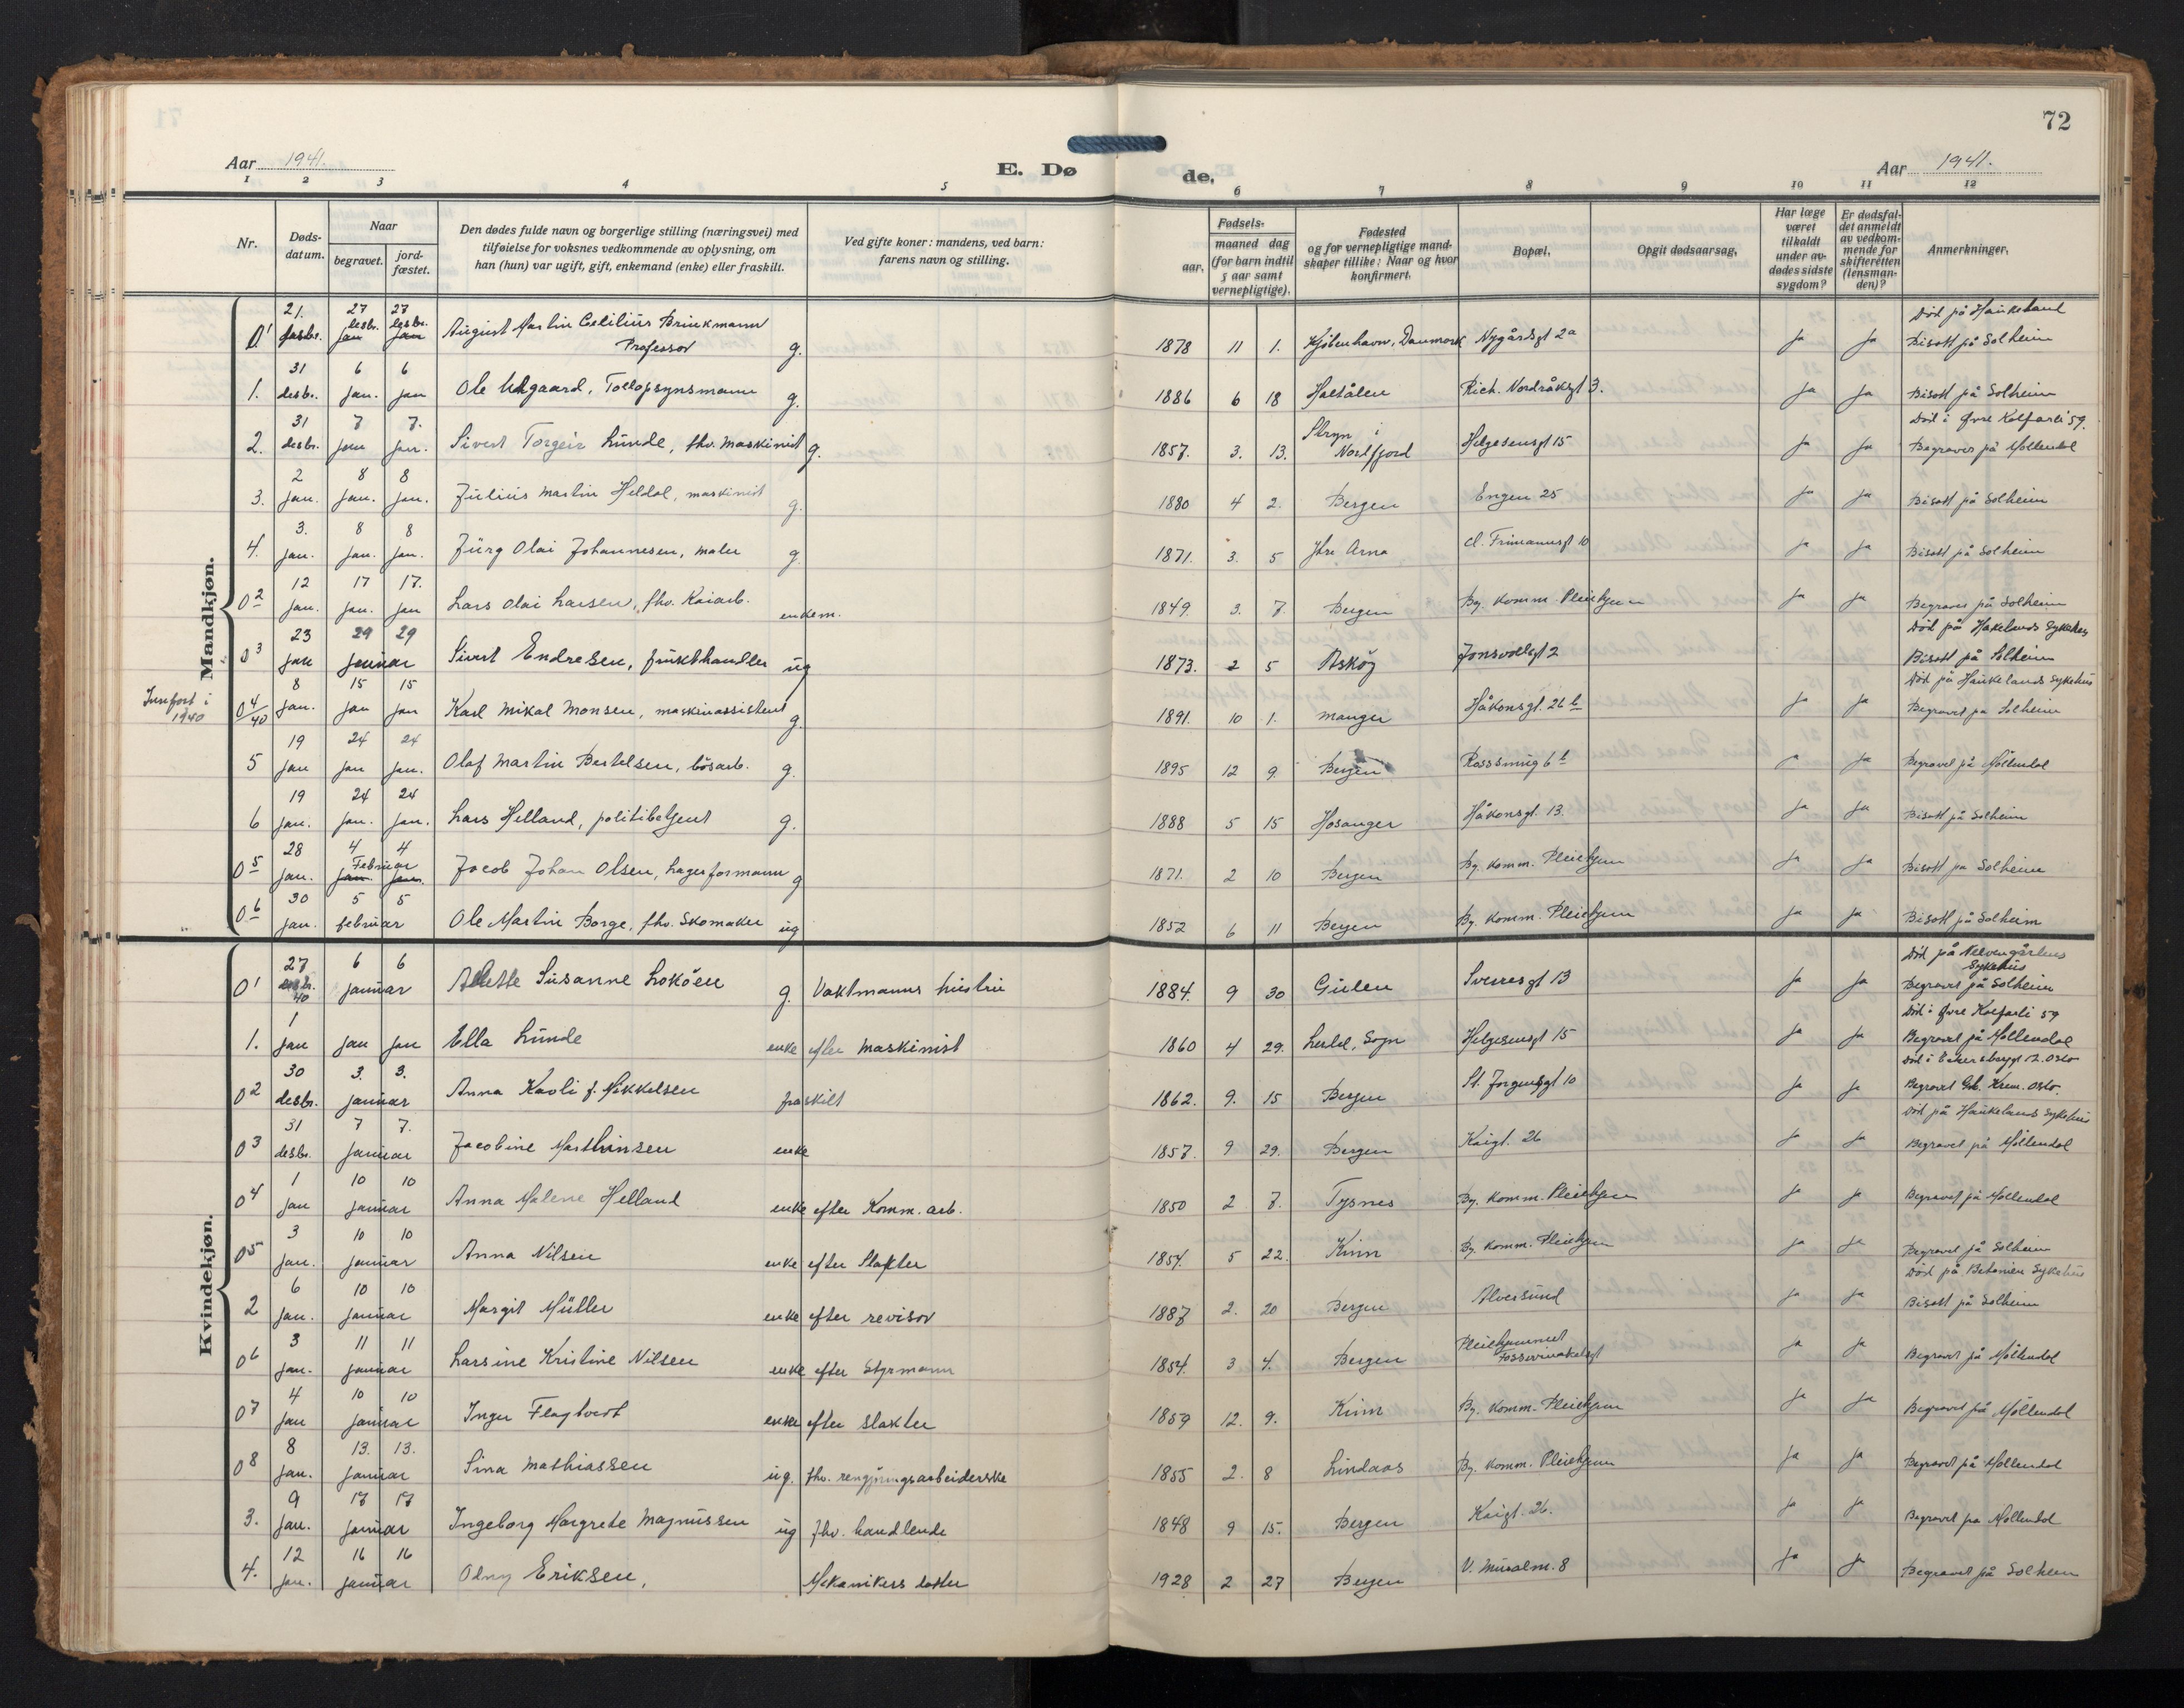 72
Aar 1941.
E. Dø
de.
Aar 1941.
1 2 3 4 5 6 7 8 9 10 11 12
Nr.
Døds-
datum.
Naar
begravet.
jord-
fæstet.
Den dødes fulde navn og borgerlige stilling (næringsvei) med
tilføielse for voksnes vedkommende av oplysning, om
han (hun) var ugift, gift, enkemand (enke) eller fraskilt.
Ved gifte koner: mandens, ved barn:
farens navn og stilling.
Fødsels-
aar.
maaned dag
(for barn indtil
5 aar samt
vernepligtige).
Fødested
og for vernepligtige mand-
skaper tillike: Naar og hvor
konfirmert.
Bopæl.
Opgit dødsaarsag.
Har læge
været
tilkaldt
under av-
dødes sidste
sygdom?
Er dødsfal-
det anmeldt
av vedkom-
mende for
skifteretten
(lensman-
den)?
Anmerkninger.
Mandkjøn.
21. 27 27 Død på Haukeland
01 desbr. desbr. jan desbr. jan August Martin Cecilius Brinkmann
Professor g. 1878 11 1. Kjøbenhavn, Danmark Nygårdsgt 2a Ja Ja Bisatt på Solheim
31 6 6
1. desbr. jan. jan Ole Utgaard, Tollopsynsmann g. 1886 6 18 Haltålen Rich. Nordråksgt 3. Ja Ja Bisatt på Solheim
31 7 7. Død i Øvre Kalfarli 59.
2. desbr. jan jan. Sivert Torgeir Lunde, fhv. maskinist g. 1857. 3. 13. Stryn i
Nordfjord Helgesensgt 15 Ja Ja Begravet på Møllendal
2 8 8
3. jan. jan. jan. Julius Martin Heldal, maskinist g. 1880 4 2. Bergen Engen 25 Ja Ja Bisatt på Solheim
3. 8 8
4. jan. jan. jan. Jürg Olai Johannesen, maler g. 1871. 3. 5 Ytre Arna Cl. Frimannsgt 10 Ja Ja Bisatt på Solheim
12 17 17.
02 jan. jan. jan Lars Olai Larsen, fhv. Kaiarb. enkem. 1849. 3. 7. Bergen By. komm. Pleiehjem Ja Ja Begravet på Solheim
23 29 29 Død på Hakelands Sykehus
03 jan januar Sivert Endresen, frukthandler ug 1873. 2 5 Askøy Jonsvollsgt 2 Bisatt på Solheim
8 15 15 Død på Haukelands Sykehus
Innført i
1940
04/40 jan. jan jan Karl Mikal Monsen, maskinassistent g. 1891. 10 1. Manger Håkonsgt. 26 b Ja Ja Begravet på Solheim
19 24 24
5 jan jan jan. Olaf Martin Bertelsen, løsarb. g. 1895 12 9. Bergen Rosesmug 6 b Ja Begravet på Møllendal
19 24 24
6 jan. jan. jan. Lars Helland, politibetjent g. 1888 5 15 Hosanger Håkonsgt. 13. Ja Ja Bisatt på Solheim
28 4 4
05 jan. Februar jan. jan. Jacob Johan Olsen, Lagerformann g 1871. 2 10 Bergen By. komm. Pleiehjem Ja Ja Bisatt på Solheim
30 5 5
06 jan. februar Ole Martin Borge, fhv. Skomaker ug 1852 6 11 Bergen By. komm. Pleiehjem Ja Ja Bisatt på Solheim
Kvindekjøn.
27 6 6 Død på Nevengårdens
Sykehus
01 desbr. 40 januar Alette Susanne Lokøen g. Vaktmanns hustru 1884. 9 30 Gulen Sverresgt 13 Ja Ja Begravet på Solheim
1 Død i Øvre Kalfarli 59
1. jan jan jan Ella Lunde enke efter maskinist 1860 4 29. Leirdal, Sogn Helgesensgt 15 Ja Ja Begravet på Møllendal
30 3. 3. Død i Eckersbergsgt 12. Oslo
02 desbr. januar Anna Kavli f. Mikkelsen fraskilt 1862. 9. 15 Bergen St. Jørgensgt 10 Ja Ja Begravet Krem. Oslo.
31 7 7. Død på Haukelands Sykehus
03 desbr. januar Jacobine Marthinsen enke 1857. 9 29. Bergen Kaigt. 26 Ja Ja Begravet på Møllendal
1 10 10
04 jan januar Anna Malene Helland enke efter Komm. arb. 1850 2 7. Tysnes By. komm. Pleiehjem Ja Ja Begravet på Møllendal
3 10 10
05 jan. januar Anna Nilsen enke efter Slakter 1854. 5 22. Kinn By. komm. Pleiehjem Ja Ja Begravet på Solheim
6 10 10 Død på Betanien Sykehus
2 jan. januar Margit Müller enke efter revisor 1887 2. 20 Bergen Alversund Ja Ja Bisatt på Solheim
3 11 11
06 jan. januar Larsine Kristine Nilsen enke efter Styrmann 1854. 3 4. Bergen Pleiehjemmet
Ja Ja Begravet på Møllendal
4 10 10
07 jan januar Inger Flagtvedt enke efter slakter 1859 12. 9. Kinn By. komm. Pleiehjem Ja Ja Begravet på Møllendal
8 13. 13.
08 jan. januar Sina Mathiassen ug. fhv. rengjøringsarbeiderske 1855 2. 8 Lindaas By. komm. Pleiehjem Ja Ja Begravet på Møllendal
9 17 17
3. jan. januar Ingeborg Margrete Magnussen ug fhv. handlende 1848 9 15. Bergen Kaigt. 26. Ja Ja Begravet på Møllendal
12 16 16
4. jan. januar Odny Eriksen, Mekanikers datter 1928 2 27 Bergen V. Muralm. 8 Ja Ja Begravet på Solheim